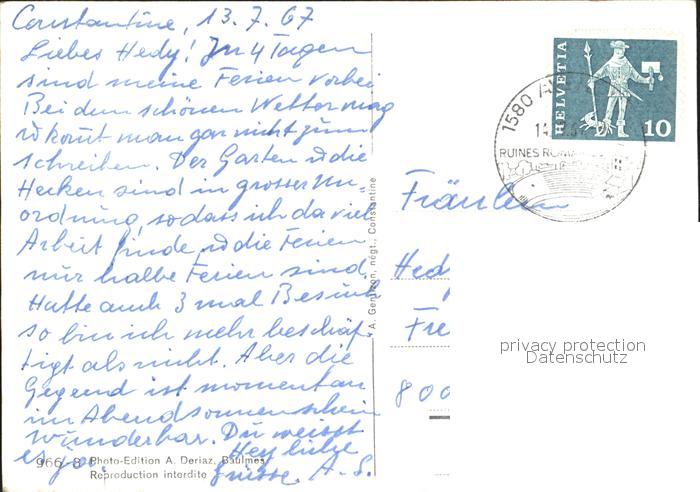 Constantine, 13.7.67
Liebes Hedy! In 4 Tagen
sind meine Ferien vorbei
Bei dem schönen Wetter mag
u komt man gar nicht zum
schreiben. Der Garten u die
Hecken sind in grosser Un-
ordnung, sodass ich da viel
Arbeit finde, u die Ferien
nur halbe Ferien sind.
Hatte auch 3 mal Besuch
so bin ich mehr beschäf-
tigt als nicht. Aber die
Gegend ist momentan
im Abendsonnenschein
wunderbar. Du weisst
es ja. Herzliche
Grüsse. A. S.
966 8 Photo-Edition A. Deriaz, Baulmes
Reproduction interdite
A. Gentizon, négt., Constantine
HELVETIA
10
1580 AV
14
RUINES ROMA
Fräulein
Hed
Fre
800
privacy protection
Datenschutz